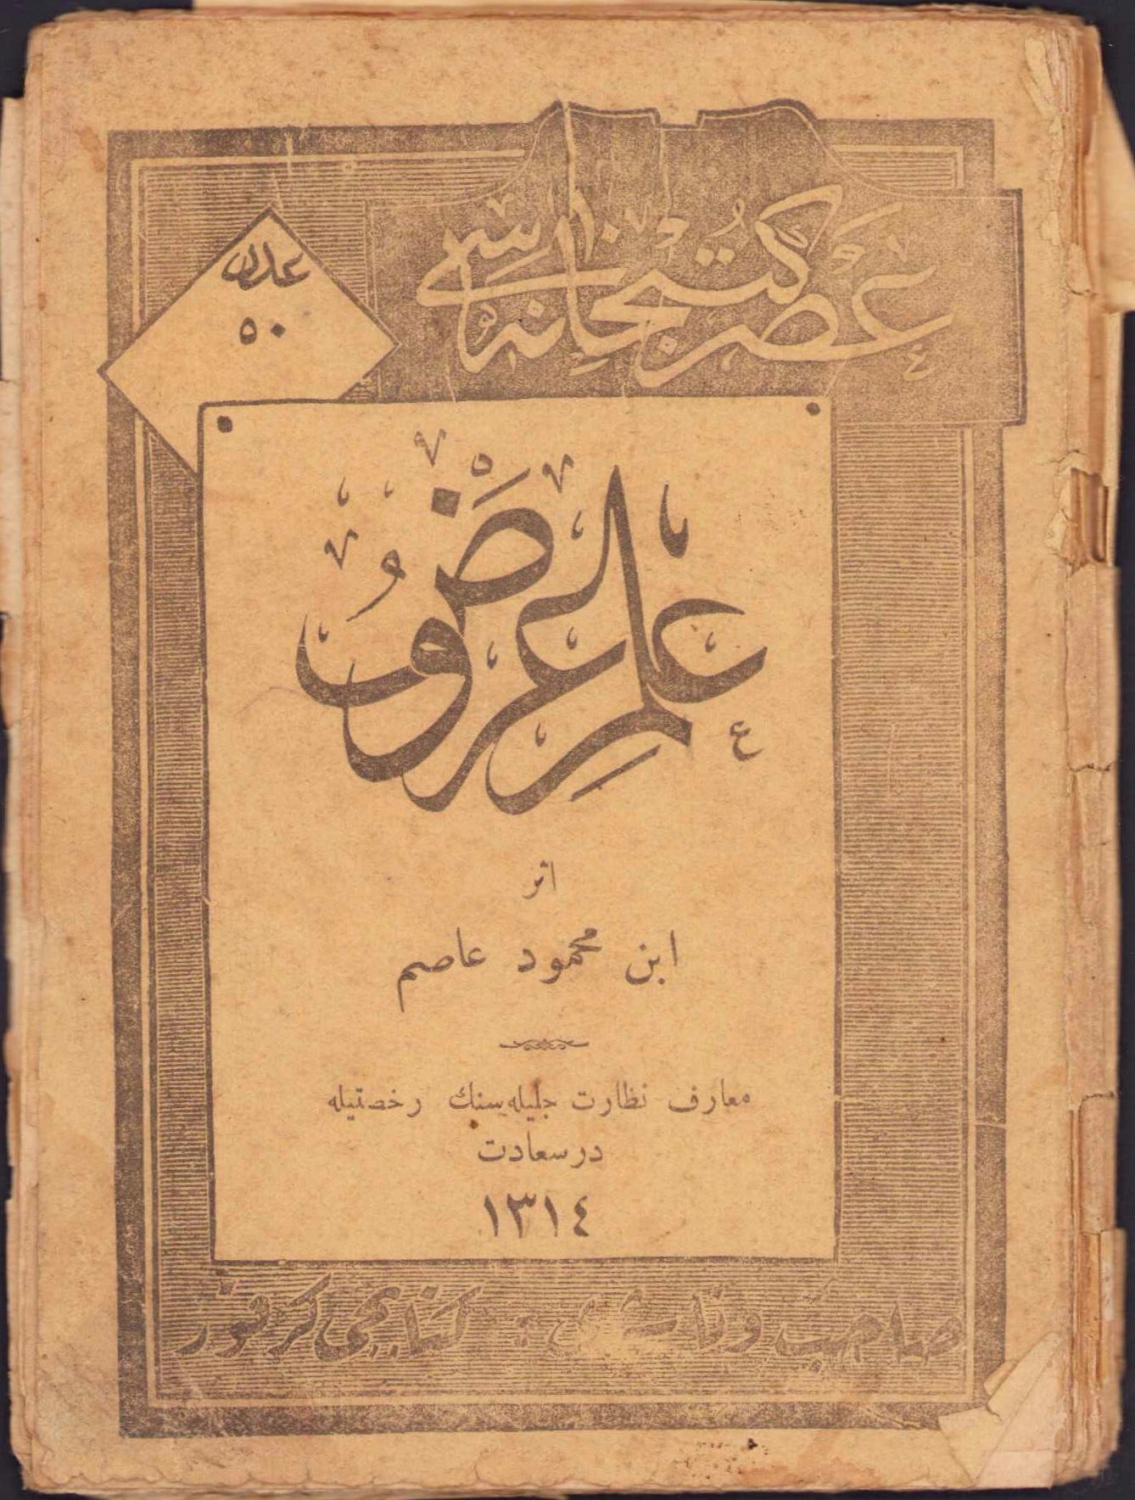 عصر کتبخانه‌سی
عدد
٥٠
علم عروض
اثر
ابن محمود عاصم
معارف نظارت جلیله‌سنك رخصتیله
درسعادت
١٣١٤
صاحب و ناشری : کتابجی کرقور